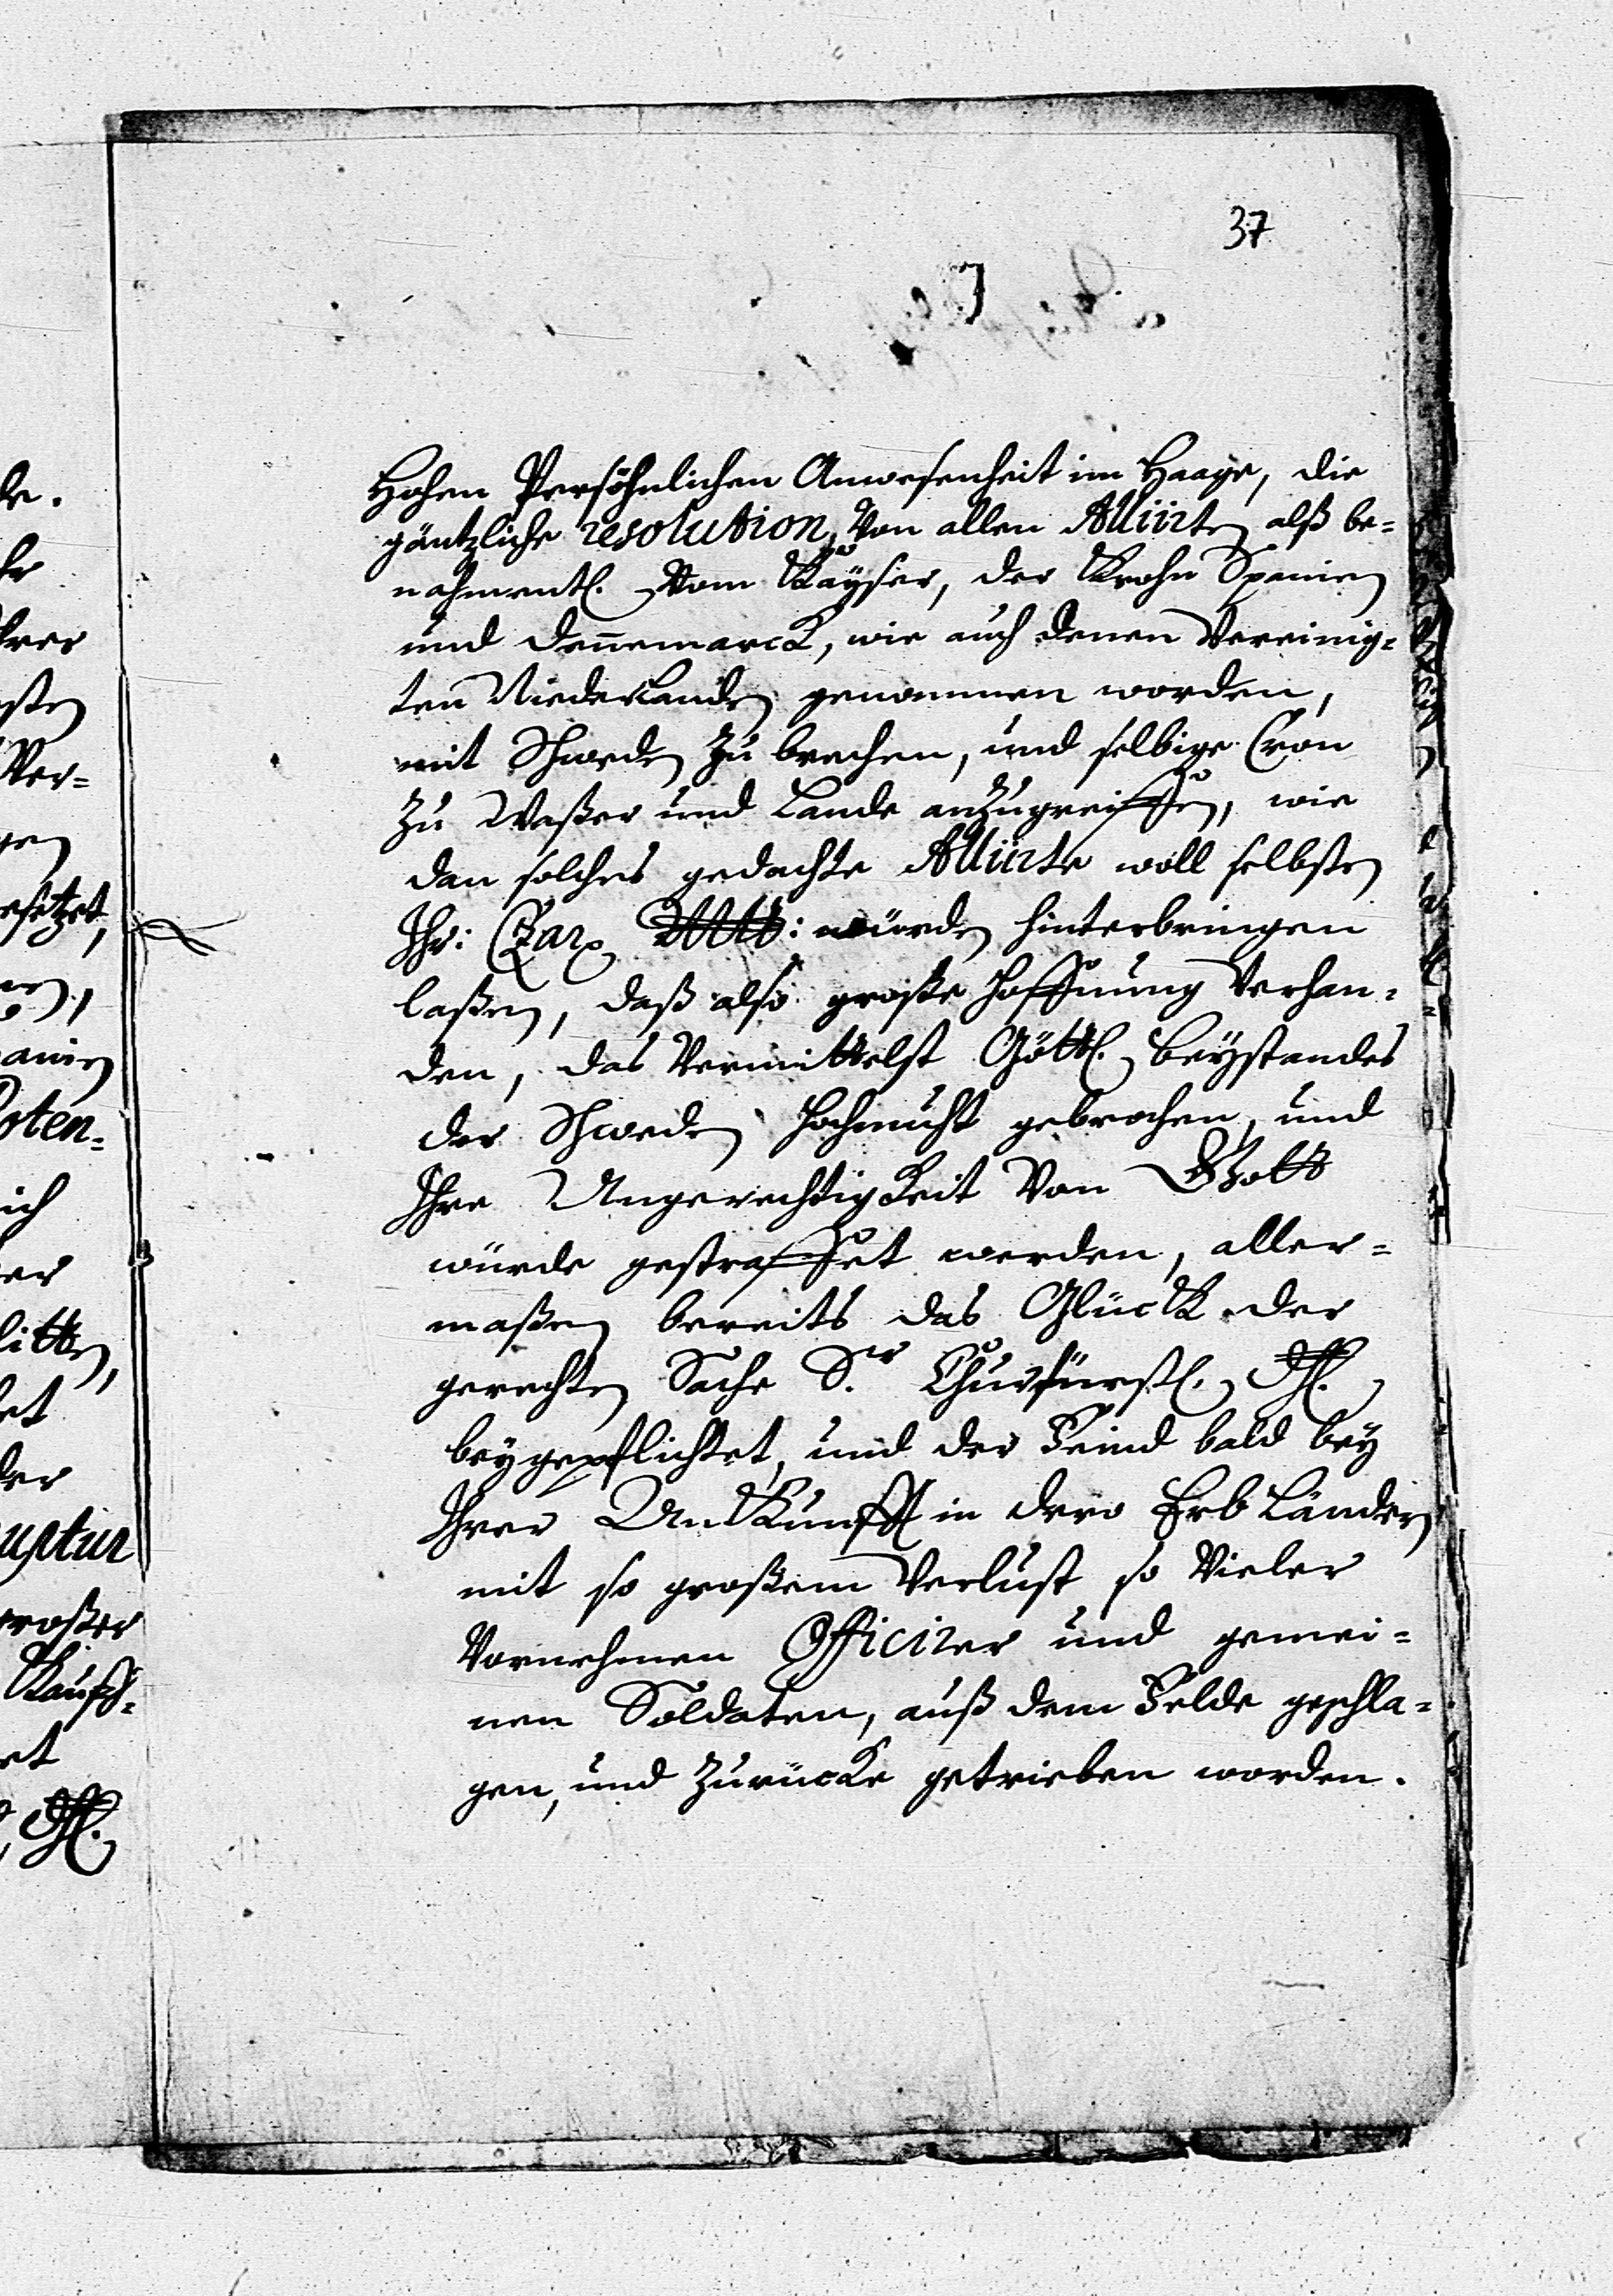 37
Hohen Persöhnlichen Anwesenheit im Haage, die
gäntzliche resolution, von allen Alliirten alß be=
nahmentl. vom Käyser, der Krohn Spanien
und Dennemarck, wie auch denen Vereinig=
ten Niederlanden genommen worden,
mit Schweden zu brechen, und selbige Cron
zu Waßer und Lande anzugreiffen, wie
dan solches gedachte Alliirte woll selbsten
Ihr: Czar. Maytt: würden hinterbringen
laßen, daß also große Hoffnung verhan=
den, das vermittelst Göttl. beystandes
der Schweden Hochmuht gebrochen, und
Ihre Ungerechtigkeit von Gott
würde gestraffet werden, aller=
maßen bereits das Glück der
gerechten Sache Sr Churfürstl. Dhl.
beygepflichtet, und der Feind bald bey
Ihrer Ankunfft in dero Erb Ländern
mit so großem Verlust so vieler
Vornehmen Officirer und gemei=
nen Soldaten, auß dem Felde geschla=
gen, und zurücke getrieben worden.